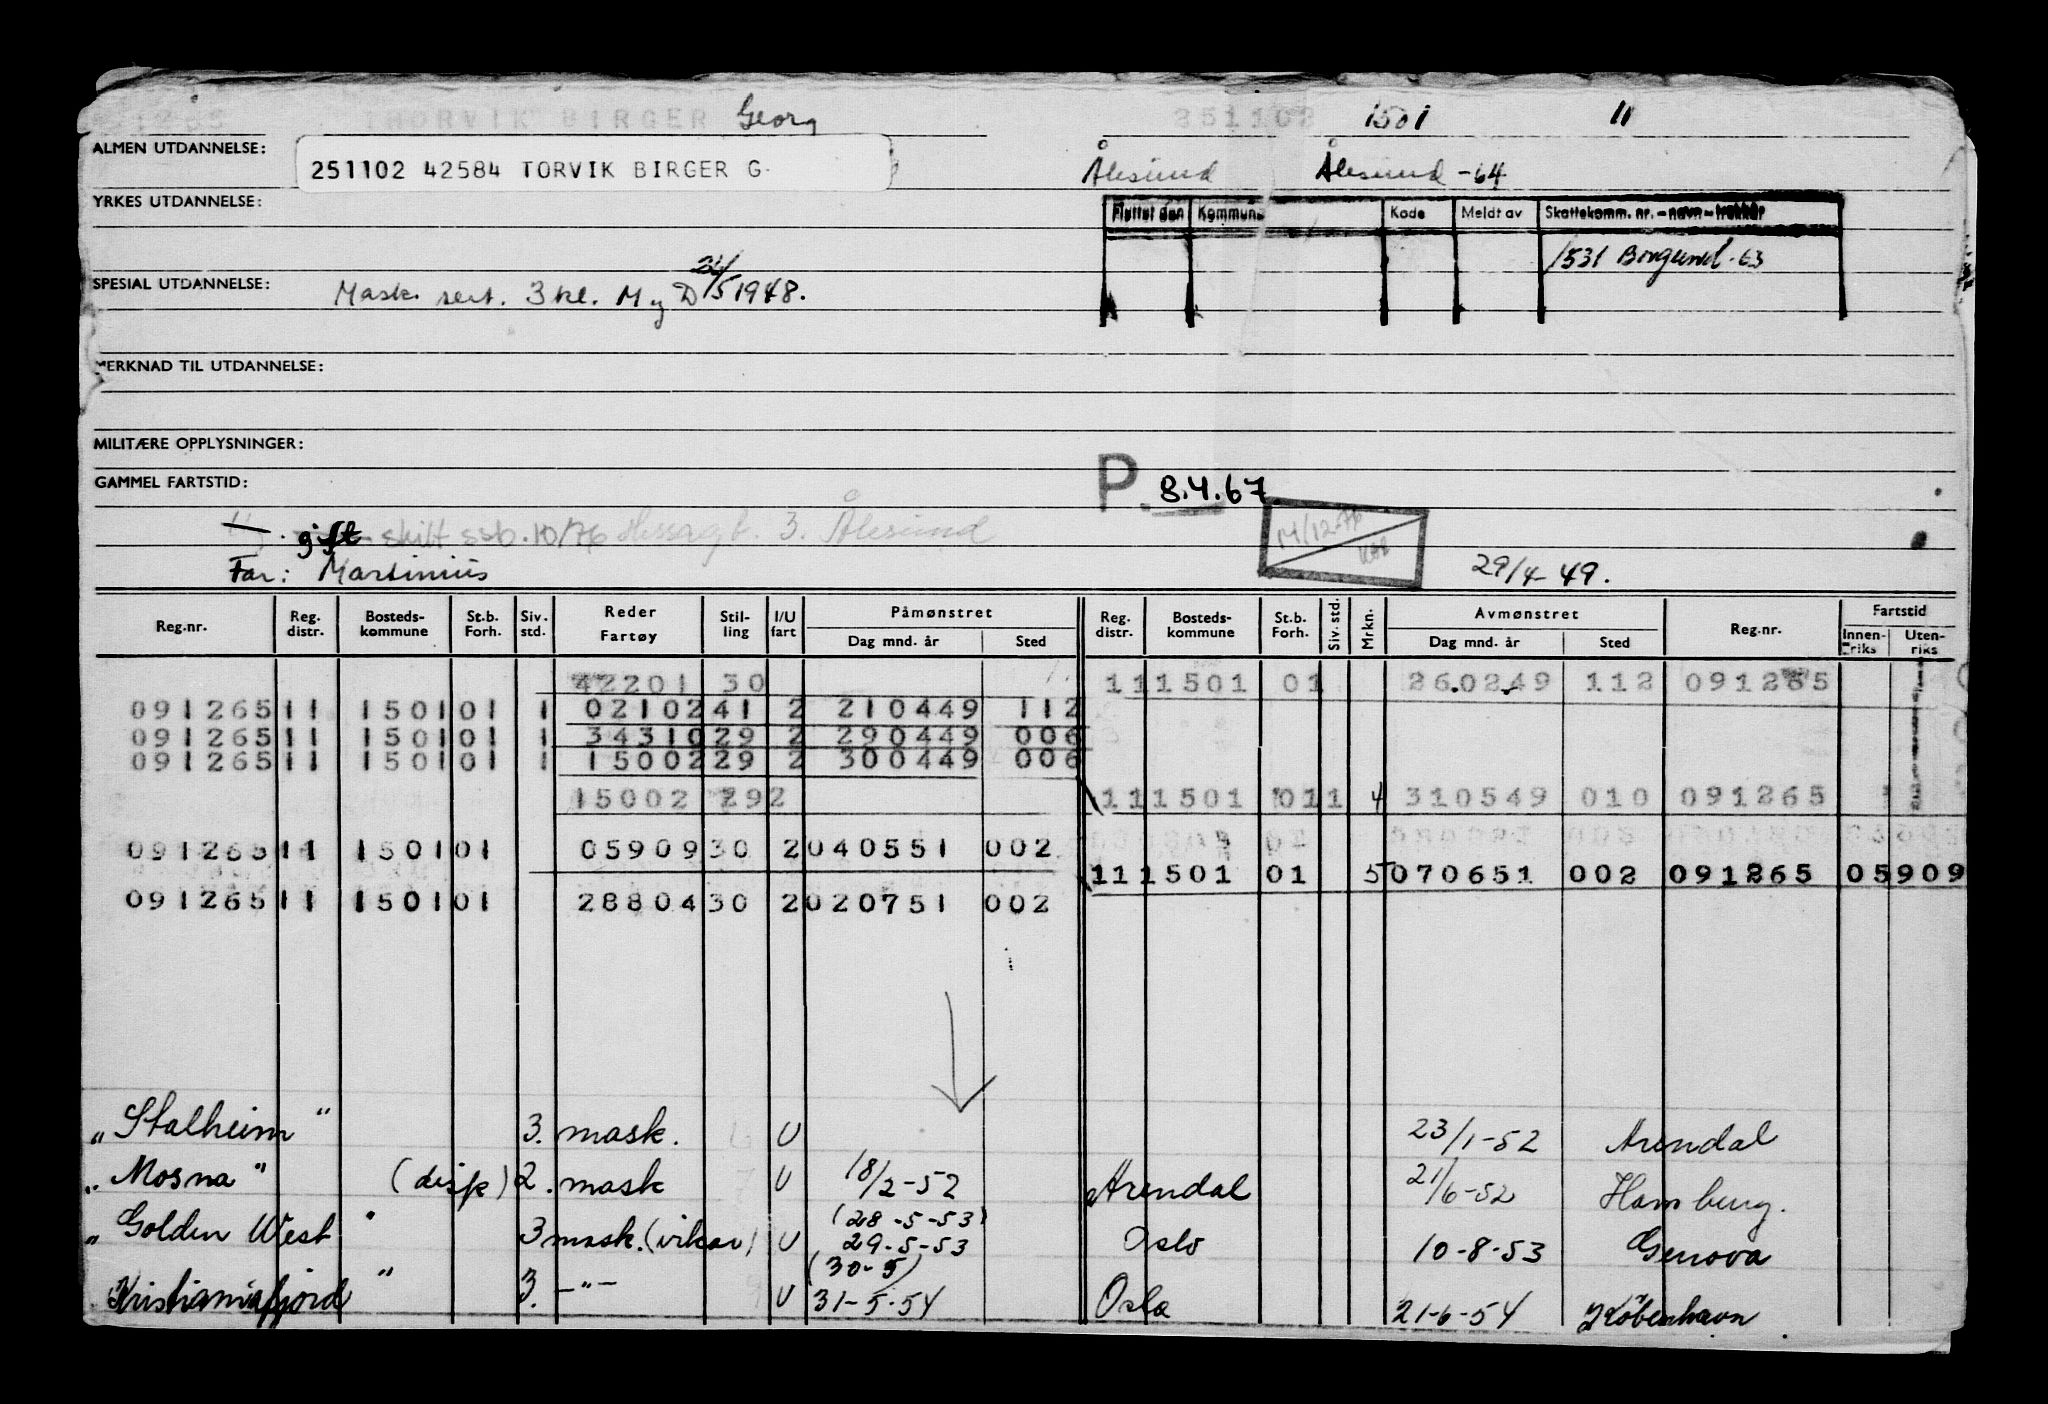 THORVIK BIRGER Georg 251102 1501 11
ALMEN UTDANNELSE:
251102 42584 TORVIK BIRGER G.
Ålesund Ålesund -64
YRKES UTDANNELSE:
Flyttet den Kommune Kode Meldt av Skattekomm. nr. - navn - trekkår
1531 Borgund -63
SPESIAL UTDANNELSE: Mask. sert. 3 kl. M og D 24/5 1948.
MERKNAD TIL UTDANNELSE:
MILITÆRE OPPLYSNINGER:
GAMMEL FARTSTID:
P. 8.4.67
gift skilt ssb. 10/76 3. Ålesund
M/12-76
Far: Martinius 29/4-49.
Reg.nr. Reg. distr. Bosteds-kommune St.b. Forh. Siv. std. Reder Fartøy Stil-ling I/U fart Påmønstret Dag mnd. år Sted Reg. distr. Bosteds-kommune St.b. Forh. Siv. std. Mrkn. Avmønstret Dag mnd. år Sted Reg.nr. Fartstid Innen-riks Uten-riks
42201 30 11 1501 01 260249 112 091265
091265 11 1501 01 1 02102 41 2 210449 112
091265 11 1501 01 1 34310 29 2 290449 006
091265 11 1501 01 1 15002 29 2 300449 006
15002 29 2 11 1501 01 1 4 310549 010 091265
091265 11 1501 01 05909 30 2 040551 002
11 1501 01 5 070651 002 091265 05909
091265 11 1501 01 28804 30 2 020751 002
"Stalheim" 3. mask. U 23/1-52 Arendal
"Mosna" (disp) 2. mask U 18/2-52 Arendal 21/6-52 Hamburg.
(28-5-53)
"Golden West" 3 mask. (vikar) U 29-5-53 Oslo 10-8-53 Genova
(30-5)
Kristianiafjord" 3. -"- U 31-5-54 Oslo 21-6-54 København